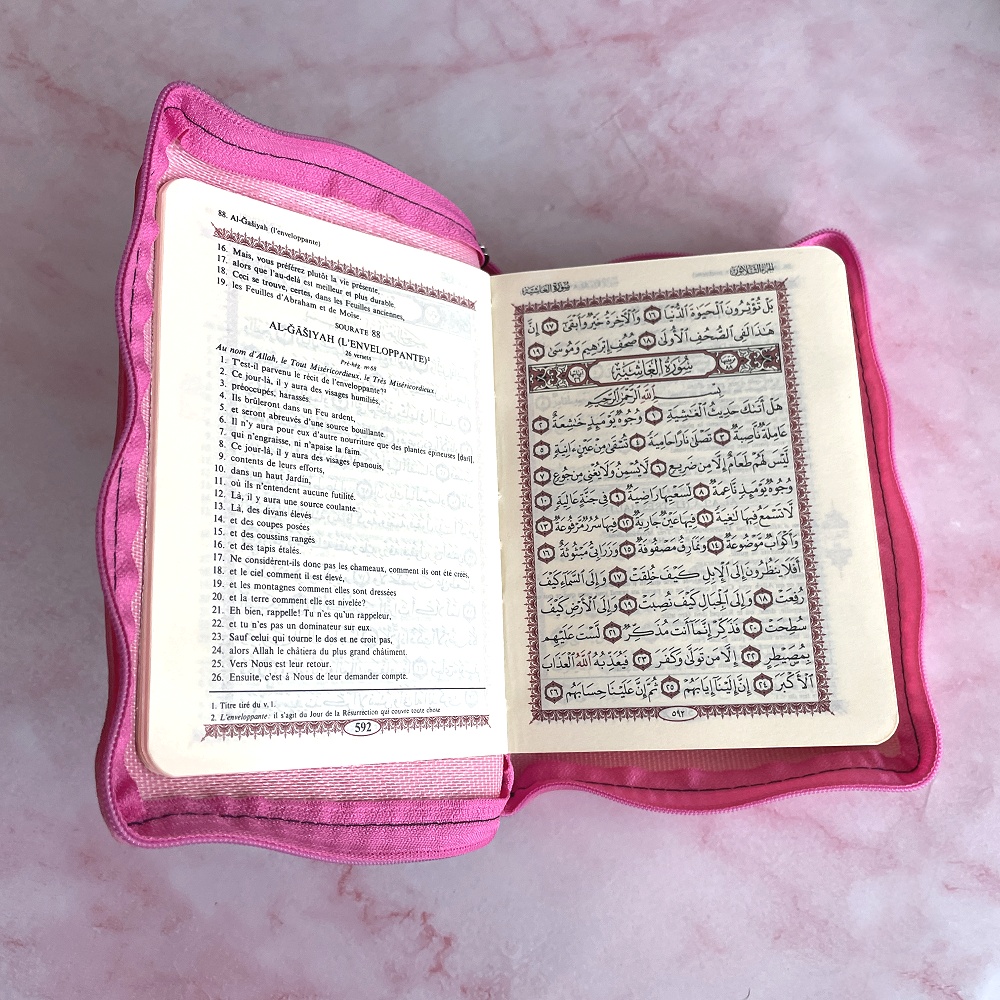 88. Al-Ğašiyah (l'enveloppante)
16. Mais, vous préférez plutôt la vie présente,
17. alors que l'au-delà est meilleur et plus durable.
18. Ceci se trouve, certes, dans les Feuilles anciennes,
19. les Feuilles d'Abraham et de Moïse.
SOURATE 88
AL-ĞĀŠIYAH (L'ENVELOPPANTE)¹
26 versets
Pré-hég. n° 68
Au nom d'Allah, le Tout Miséricordieux, le Très Miséricordieux.
1. T'est-il parvenu le récit de l'enveloppante?²
2. Ce jour-là, il y aura des visages humiliés,
3. préoccupés, harassés.
4. Ils brûleront dans un Feu ardent,
5. et seront abreuvés d'une source bouillante.
6. Il n'y aura pour eux d'autre nourriture que des plantes épineuses [darî],
7. qui n'engraisse, ni n'apaise la faim.
8. Ce jour-là, il y aura des visages épanouis,
9. contents de leurs efforts,
10. dans un haut Jardin,
11. où ils n'entendent aucune futilité.
12. Là, il y aura une source coulante.
13. Là, des divans élevés
14. et des coupes posées
15. et des coussins rangés
16. et des tapis étalés.
17. Ne considèrent-ils donc pas les chameaux, comment ils ont été créés,
18. et le ciel comment il est élevé,
19. et les montagnes comment elles sont dressées
20. et la terre comment elle est nivelée?
21. Eh bien, rappelle! Tu n'es qu'un rappeleur,
22. et tu n'es pas un dominateur sur eux.
23. Sauf celui qui tourne le dos et ne croit pas,
24. alors Allah le châtiera du plus grand châtiment.
25. Vers Nous est leur retour.
26. Ensuite, c'est à Nous de leur demander compte.
1. Titre tiré du v. 1.
2. L'enveloppante: il s'agit du Jour de la Résurrection qui couvre toute chose
592
سورة الغاشية الجزء الثلاثون
بَلْ تُؤْثِرُونَ ٱلْحَيَوٰةَ ٱلدُّنْيَا ١٦ وَٱلْآخِرَةُ خَيْرٌ وَأَبْقَىٰٓ ١٧ إِنَّ
هَٰذَا لَفِى ٱلصُّحُفِ ٱلْأُولَىٰ ١٨ صُحُفِ إِبْرَٰهِيمَ وَمُوسَىٰ ١٩
سُورَةُ الغَاشِيَةِ
بِسْمِ ٱللَّهِ ٱلرَّحْمَٰنِ ٱلرَّحِيمِ
هَلْ أَتَىٰكَ حَدِيثُ ٱلْغَٰشِيَةِ ١ وُجُوهٌ يَوْمَئِذٍ خَٰشِعَةٌ ٢
عَامِلَةٌ نَّاصِبَةٌ ٣ تَصْلَىٰ نَارًا حَامِيَةً ٤ تُسْقَىٰ مِنْ عَيْنٍ ءَانِيَةٍ ٥
لَّيْسَ لَهُمْ طَعَامٌ إِلَّا مِن ضَرِيعٍ ٦ لَّا يُسْمِنُ وَلَا يُغْنِى مِن جُوعٍ ٧
وُجُوهٌ يَوْمَئِذٍ نَّاعِمَةٌ ٨ لِّسَعْيِهَا رَاضِيَةٌ ٩ فِى جَنَّةٍ عَالِيَةٍ ١٠
لَّا تَسْمَعُ فِيهَا لَٰغِيَةً ١١ فِيهَا عَيْنٌ جَارِيَةٌ ١٢ فِيهَا سُرُرٌ مَّرْفُوعَةٌ ١٣
وَأَكْوَابٌ مَّوْضُوعَةٌ ١٤ وَنَمَارِقُ مَصْفُوفَةٌ ١٥ وَزَرَابِىُّ مَبْثُوثَةٌ ١٦
أَفَلَا يَنظُرُونَ إِلَى ٱلْإِبِلِ كَيْفَ خُلِقَتْ ١٧ وَإِلَى ٱلسَّمَآءِ كَيْفَ
رُفِعَتْ ١٨ وَإِلَى ٱلْجِبَالِ كَيْفَ نُصِبَتْ ١٩ وَإِلَى ٱلْأَرْضِ كَيْفَ
سُطِحَتْ ٢٠ فَذَكِّرْ إِنَّمَآ أَنتَ مُذَكِّرٌ ٢١ لَّسْتَ عَلَيْهِم
بِمُصَيْطِرٍ ٢٢ إِلَّا مَن تَوَلَّىٰ وَكَفَرَ ٢٣ فَيُعَذِّبُهُ ٱللَّهُ ٱلْعَذَابَ
ٱلْأَكْبَرَ ٢٤ إِنَّ إِلَيْنَآ إِيَابَهُمْ ٢٥ ثُمَّ إِنَّ عَلَيْنَا حِسَابَهُم ٢٦
٥٩٢